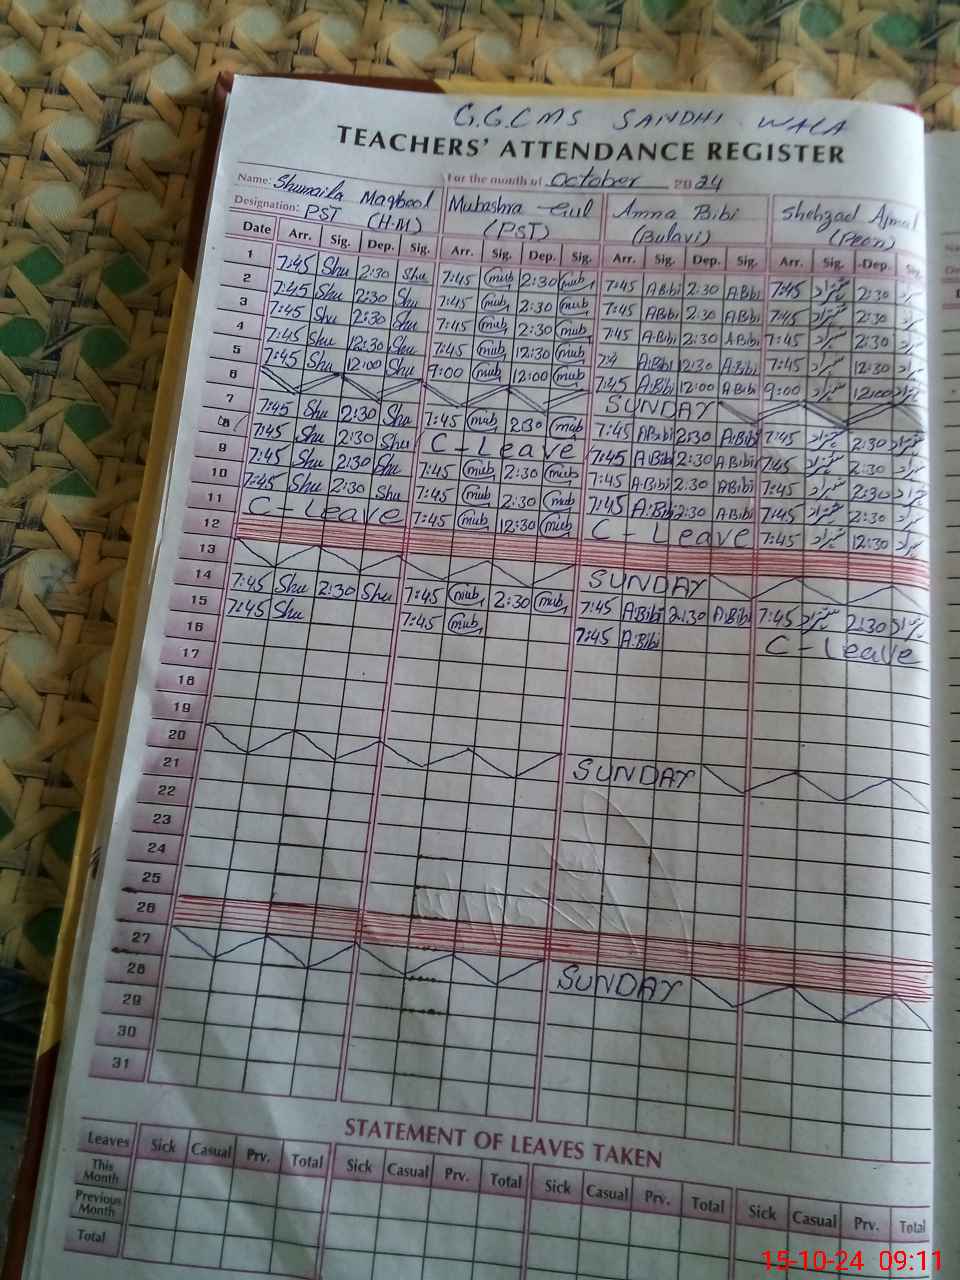 G.G.C.M.S SANDHI WALA
TEACHERS' ATTENDANCE REGISTER
For the month of October 2024
Name: Shumaila Maqbool Mubashra Gul Amna Bibi Shehzad Ajmal
Designation: PST (H-M) (PST) (Bulavi) (Peon)
Date Arr. Sig. Dep. Sig. Arr. Sig. Dep. Sig. Arr. Sig. Dep. Sig. Arr. Sig. Dep. Sig.
1 7:45 Shu 2:30 Shu 7:45 mub 2:30 mub 7:45 A.Bibi 2:30 A.Bibi 7:45 2:30
2 7:45 Shu 2:30 Shu 7:45 mub 2:30 mub 7:45 A.Bibi 2:30 A.Bibi 7:45 2:30
3 7:45 Shu 2:30 Shu 7:45 mub 2:30 mub 7:45 A.Bibi 2:30 A.Bibi 7:45 2:30
4 7:45 Shu 12:30 Shu 7:45 mub 12:30 mub 7:4 A.Bibi 12:30 A.Bibi 7:45 12:30
5 7:45 Shu 12:00 Shu 9:00 mub 12:00 mub 7:45 A.Bibi 12:00 A.Bibi 9:00 12:00
6 SUNDAY
7 7:45 Shu 2:30 Shu 7:45 mub 2:30 mub 7:45 A.Bibi 2:30 A.Bibi 7:45 2:30
8 7:45 Shu 2:30 Shu C-Leave 7:45 A.Bibi 2:30 A.Bibi 7:45 2:30
9 7:45 Shu 2:30 Shu 7:45 mub 2:30 mub 7:45 A.Bibi 2:30 A.Bibi 7:45 2:30
10 7:45 Shu 2:30 Shu 7:45 mub 2:30 mub 7:45 A.Bibi 2:30 A.Bibi 7:45 2:30
11 C-Leave 7:45 mub 12:30 mub C-Leave 7:45 12:30
12
13 SUNDAY
14 7:45 Shu 2:30 Shu 7:45 mub 2:30 mub 7:45 A.Bibi 2:30 A.Bibi 7:45 2:30
15 7:45 Shu 7:45 mub 7:45 A.Bibi C-Leave
16
17
18
19
20 SUNDAY
21
22
23
24
25
26
27 SUNDAY
28
29
30
31
STATEMENT OF LEAVES TAKEN
Leaves Sick Casual Prv. Total Sick Casual Prv. Total Sick Casual Prv. Total Sick Casual Prv. Total
This Month
Previous Month
Total
15-10-24 09:11